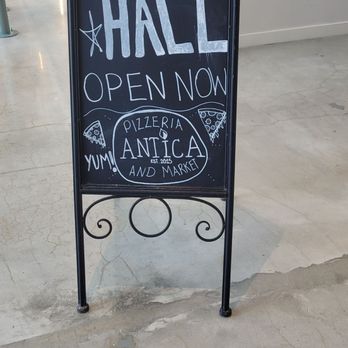 HALL
OPEN NOW
PIZZERIA
ANTICA
EST. 2025
AND MARKET
YUM!